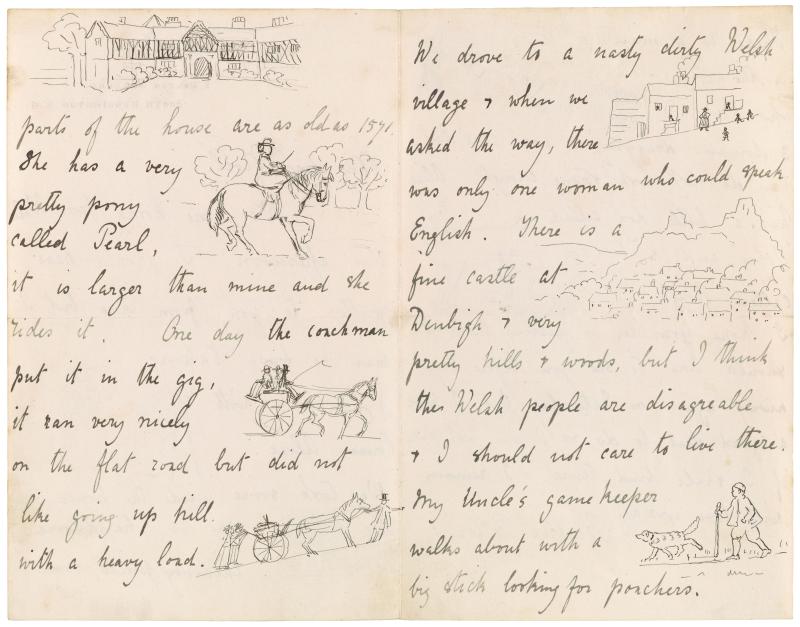 parts of the house are as old as 1571.
She has a very
pretty pony
called Pearl,
it is larger than mine and she
rides it. One day the coachman
put it in the gig,
it ran very nicely
on the flat road but did not
like going up hill.
with a heavy load.
We drove to a nasty dirty Welsh
village & when we
asked the way, there
was only one woman who could speak
English. There is a
fine castle at
Denbigh & very
pretty hills & woods, but I think
the Welsh people are disagreable
& I should not care to live there.
My Uncle's game keeper
walks about with a
big stick looking for poachers.